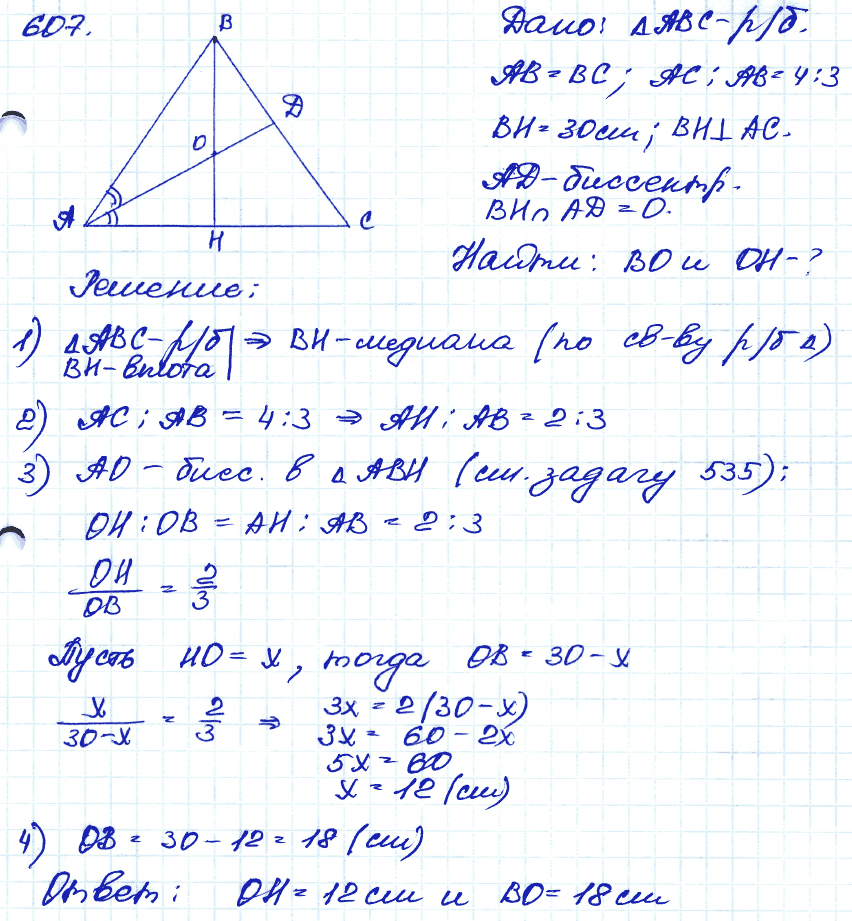 607.
B
D
O
A
H
C
Дано: △ABC-р/б.
AB = BC; AC : AB = 4:3
BH = 30см; BH⊥AC.
AD-биссектр.
BH∩AD = O.
Найти: BO и OH-?
Решение:
1) △ABC-р/б | ⇒ BH-медиана (по св-ву р/б △)
BH-высота
2) AC : AB = 4:3 ⇒ AH : AB = 2:3
3) AO - бисс. в △ABH (см. задачу 535):
OH : OB = AH : AB = 2:3
OH/OB = 2/3
Пусть HO = x, тогда OB = 30-x
x/(30-x) = 2/3 ⇒ 3x = 2(30-x)
3x = 60-2x
5x = 60
x = 12 (см)
4) OB = 30-12 = 18 (см)
Ответ: OH = 12см и BO = 18см